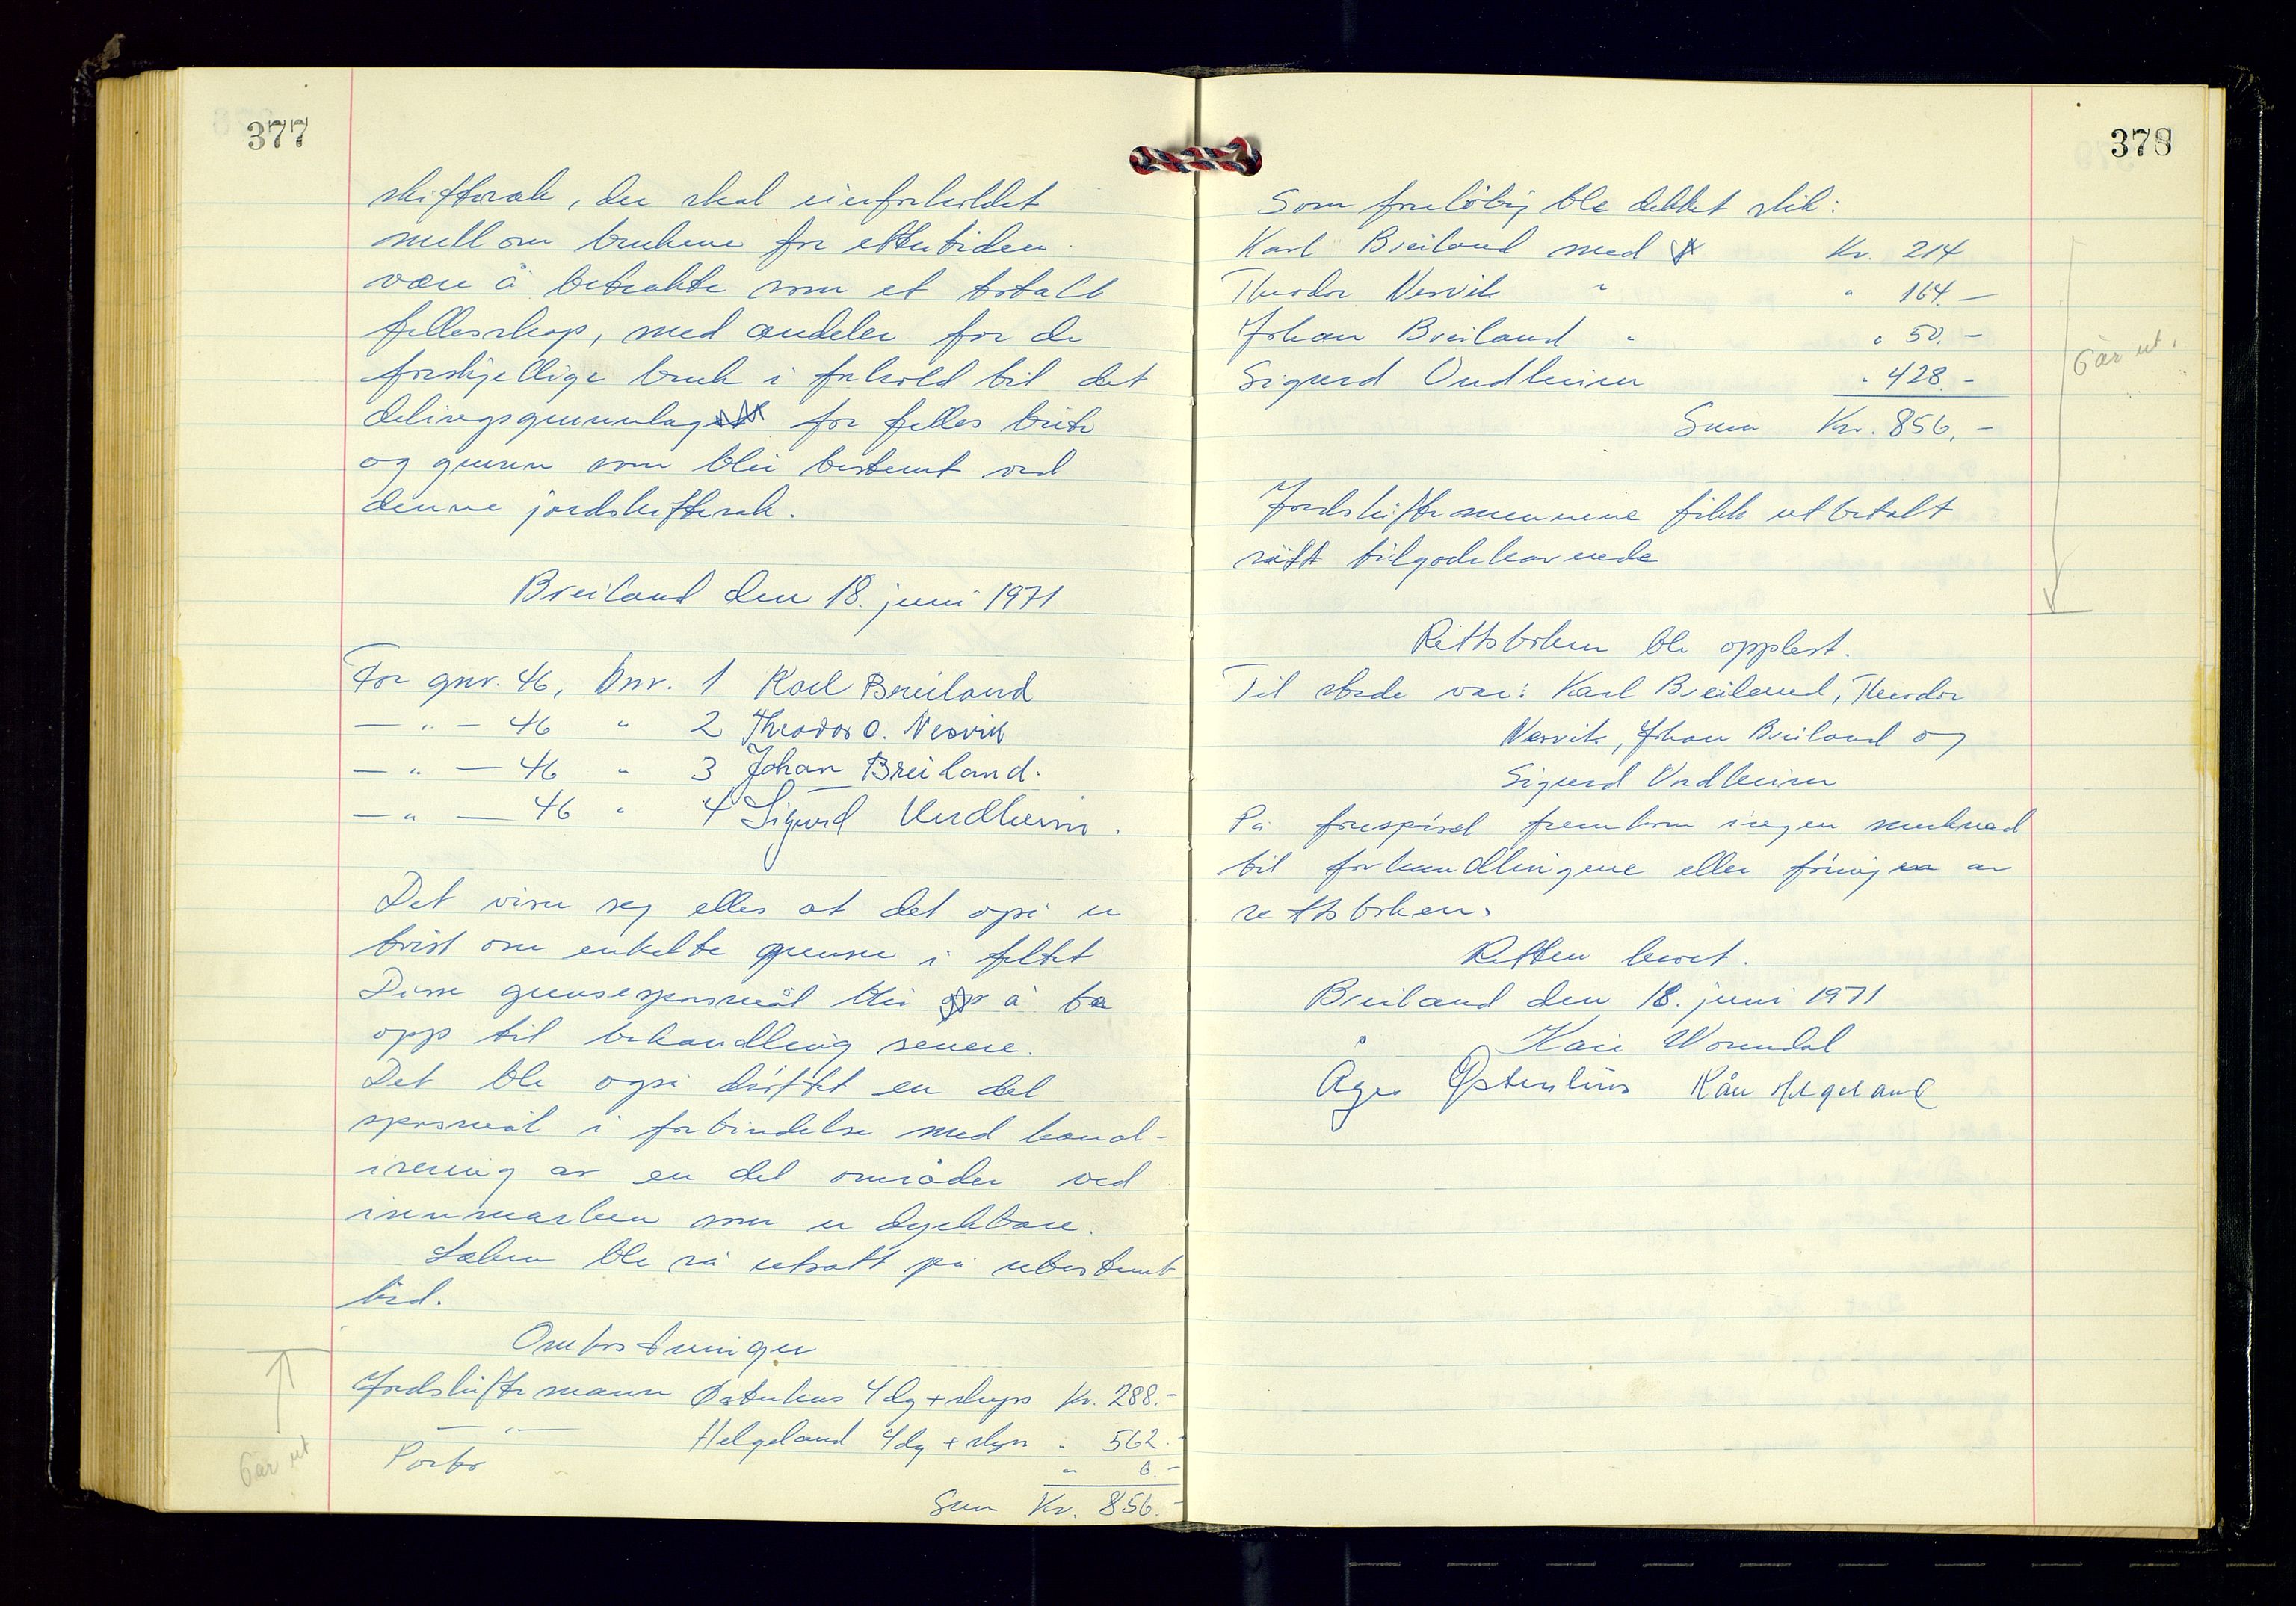 377
skiftesak, der skal eierforholdet
mellom brukene for ettertiden
være å betrakte som et totalt
fellesskap, med andeler for de
forskjellige bruk i forhold til det
delingsgrunnlag for felles beite
og grunn som blir bestemt ved
denne jordskiftesak.
Breiland den 18. juni 1971
For gnr. 46, bnr. 1 Karl Breiland
— " — 46 " 2 Theodor O. Nesvik
— " — 46 " 3 Johan Breiland.
— " — 46 " 4 Sigurd Undheim.
Det viser seg elles at det også er
tvist om enkelte grenser i feltet
Disse grensespørsmål blir å ta
opp til behandling senere.
Det ble også drøftet en del
spørsmål i forbindelse med kanal-
isering av en del områder ved
innmarken som er dyrkbare.
Saken ble så utsatt på ubestemt
tid.
Omkostninger
Jordskiftemann Østenhus 4 dg + skyss Kr. 288.-
— " — Helgeland 4 dg + skyss " 562.-
Porto " 6.-
Sum Kr. 856.-
Går ut
378
Som foreløbig ble dekket slik:
Karl Breiland med Kr. 214
Theodor Nesvik " " 164.—
Johan Breiland " " 50.—
Sigurd Undheim " 428.-
Sum Kr. 856.-
Går ut.
Jordskiftemennene fikk utbetalt
sitt tilgodehavende
Rettsboken ble opplest.
Til stede var: Karl Breiland, Theodor
Nesvik, Johan Breiland og
Sigurd Undheim
På forespørsel fremkom ingen merknad
til forhandlingene eller føringen av
rettsboken.
Retten hevet.
Breiland den 18. juni 1971
Kåre
Åge Østenhus Kåre Helgeland